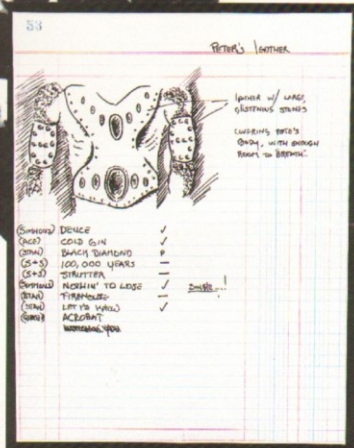 53
PETER'S LEATHER
LEATHER W/ LARGE,
GLISTENING STONES
COVERING PETE'S
BODY, WITH ENOUGH
ROOM TO BREATH.
(SIMMONS) DEUCE ✓
(ACE) COLD GIN ✓
(STAN) BLACK DIAMOND P
(S+S) 100,000 YEARS —
(S+S) STRUTTER —
(SIMMONS) NOTHIN' TO LOSE ✓ SINGLE...!
(STAN) FIREHOUSE —
(STAN) LET ME KNOW ✓
ACROBAT